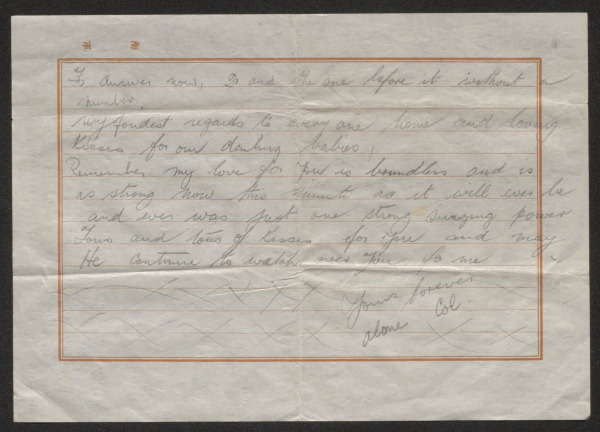 To answer now, 2 and the one before it without a
number,
My fondest regards to every one home and loving
Kisses for our darling babies,
Remember my love for you is boundless and is
as strong now this minute as it will ever be
and ever was just one strong surging power
Tons and tons of Kisses for you and may
He continue to watch over you for me
Yours forever
alone Col